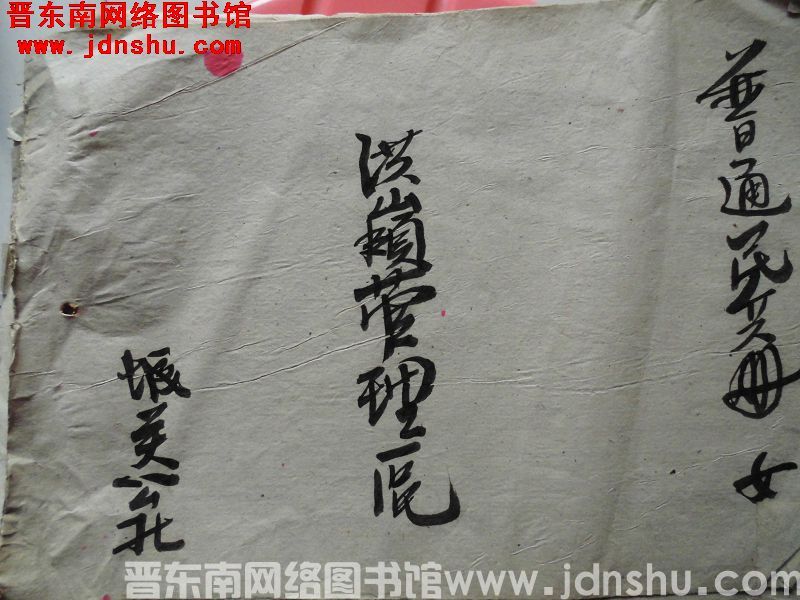 晋东南网络图书馆
www.jdnshu.com
普通民兵册 女
洪嶺管理區
城关公社
晋东南网络图书馆www.jdnshu.com